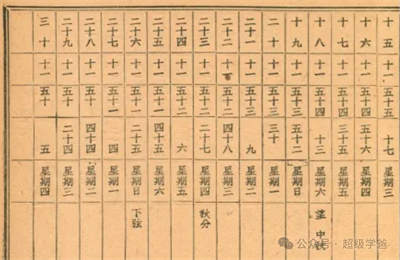 十五 十一 五十五 十七 星期三
十六 十一 五十四 五十六 星期四
十七 十一 五十四 三十五 星期五
十八 十一 五十四 十三 星期六 望 中秋
十九 十一 五十三 五十二 星期日
二十 十一 五十三 三十 星期一
二十一 十一 五十三 九 星期二
二十二 十一 五十二 四十八 星期三
二十三 十一 五十二 二十七 星期四 秋分
二十四 十一 五十二 六 星期五
二十五 十一 五十一 四十五 星期六
二十六 十一 五十一 二十五 星期日 下弦
二十七 十一 五十一 四 星期一
二十八 十一 五十 四十四 星期二
二十九 十一 五十 二十四 星期三
三十 十一 五十 五 星期四
公众号·超级学爸